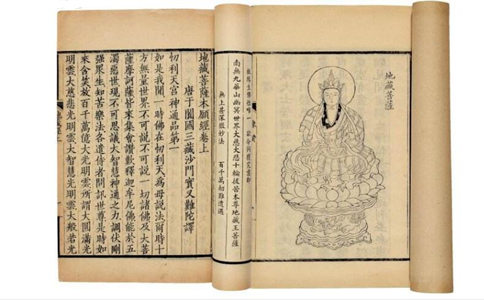 地藏菩薩
南無九華山幽冥世界大慈大悲十輪拔苦本尊地藏王菩薩
無上甚深微妙法 百千萬劫難遭遇
地藏菩薩本願經卷上
唐于闐國三藏沙門實叉難陀譯
忉利天宮神通品第一
如是我聞一時佛在忉利天為母說法爾時十
方無量世界不可說不可說一切諸佛及大菩
薩摩訶薩皆來集會讚歎釋迦牟尼佛能於五
濁惡世現不可思議大智慧神通之力調伏剛
強眾生知苦樂法各遣侍者問訊世尊是時如
來含笑放百千萬億大光明雲所謂大圓滿光
明雲大慈悲光明雲大智慧光明雲大般若光